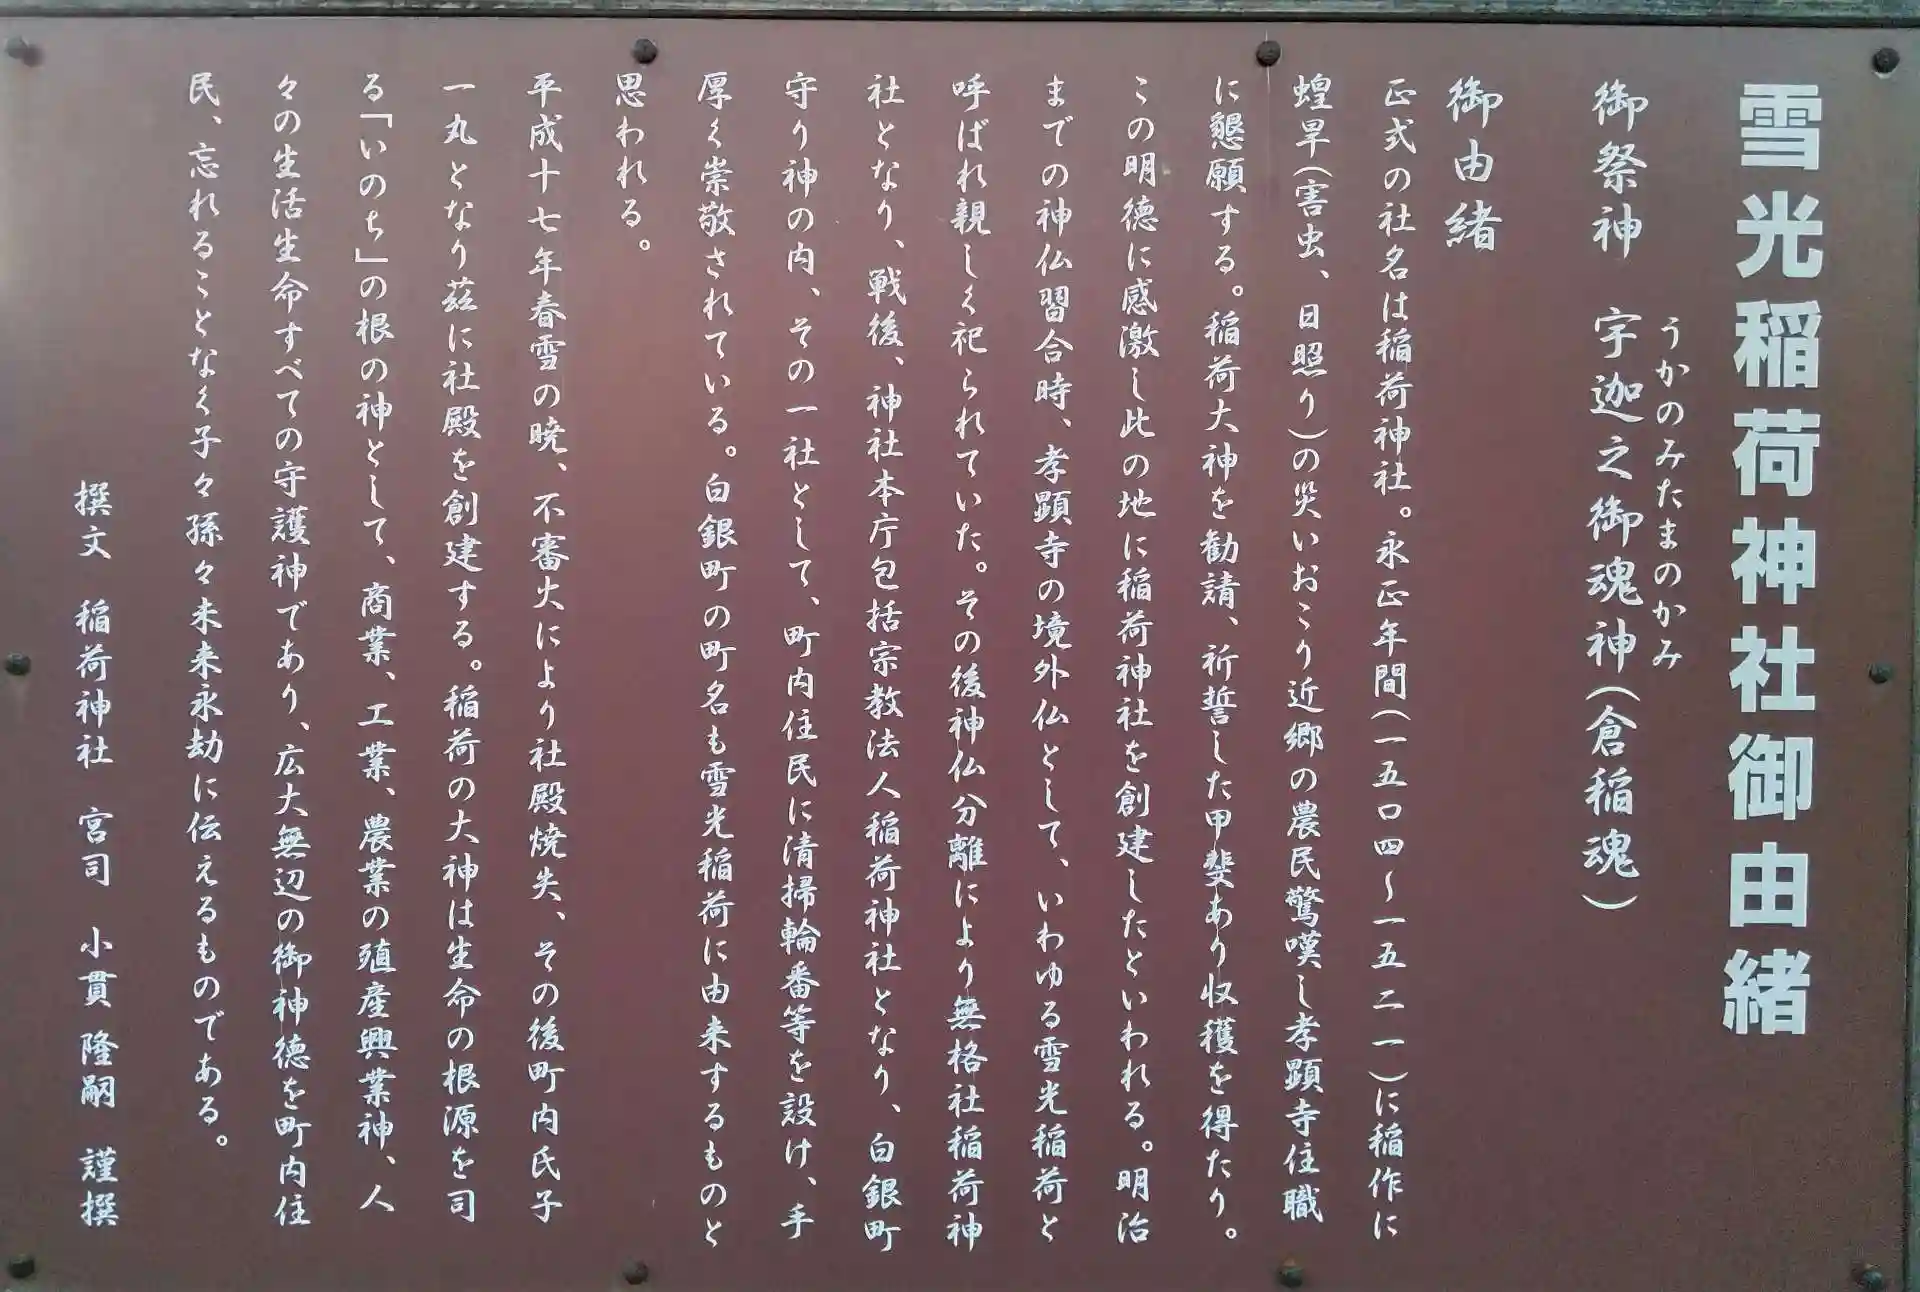 雪光稲荷神社御由緒
御祭神　宇迦之御魂神（倉稲魂）
うかのみたまのかみ
御由緒
正式の社名は稲荷神社。永正年間（一五〇四～一五二一）に稲作に
蝗旱（害虫、日照り）の災いおこり近郷の農民驚嘆し孝顕寺住職
に懇願する。稲荷大神を勧請、祈誓した甲斐あり収穫を得たり。
この明徳に感激し此の地に稲荷神社を創建したといわれる。明治
までの神仏習合時、孝顕寺の境外仏として、いわゆる雪光稲荷と
呼ばれ親しく祀られていた。その後神仏分離により無格社稲荷神
社となり、戦後、神社本庁包括宗教法人稲荷神社となり、白銀町
守り神の内、その一社として、町内住民に清掃輪番等を設け、手
厚く崇敬されている。白銀町の町名も雪光稲荷に由来するものと
思われる。
平成十七年春雪の暁、不審火により社殿焼失、その後町内氏子
一丸となり茲に社殿を創建する。稲荷の大神は生命の根源を司
る「いのち」の根の神として、商業、工業、農業の殖産興業神、人
々の生活生命すべての守護神であり、広大無辺の御神徳を町内住
民、忘れることなく子々孫々未来永劫に伝えるものである。
撰文　稲荷神社　宮司　小貫隆嗣　謹撰